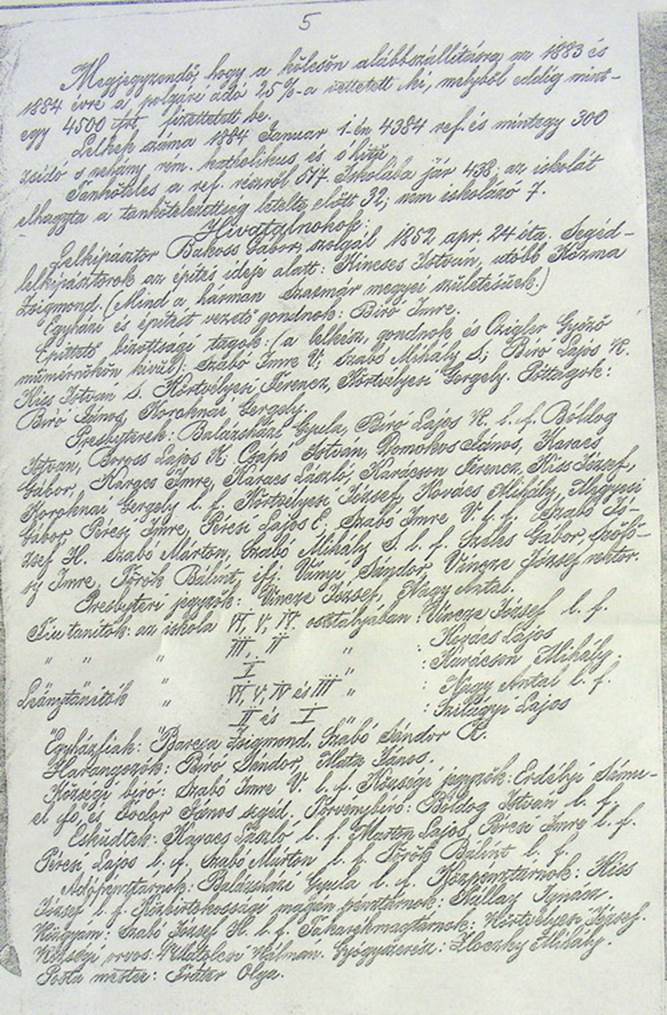 5
Megjegyzendő, hogy a kölcsön alábbszállítására az 1883 és
1884 évre a polgári adó 25%-a vettetett ki, melyből eddig mint-
egy 4500 frt. fizettetett be.
Lelkek száma 1884 Januar 1-én 4384 ref. és mintegy 300
zsidó s nehány róm. katholikus és ó hitű.
Tanköteles a ref. részről 517 Iskolába jár 438; az iskolát
elhagyta a tankötelezettség letelte előtt 32; nem iskolázó 7.
Hivatalnokok:
Lelkipásztor Bakoss Gábor, szolgál 1852 apr. 24 óta. Segéd-
lelkipásztorok az építés ideje alatt: Kincses István, utóbb Kozma
Zsigmond. (Mind a hárman Szatmár megyei születésűek.)
Egyházi és építést vezető gondnok: Biró Imre.
Építtető bizottsági tagok: (a lelkész, gondnok és Czigler Győző
műmérnökön kivül): Szabó Imre V; Szabó Mihály S; Biró Lajos K.
Kiss István s. Körtvélyesi Ferencz, Körtvélyesi Gergely. Póttagok:
Biró János, Koroknai Gergely.
Presbyterek: Balásházi Gyula, Biró Lajos K. l. f. Bóldog
István, Boross Lajos K; Czapó István, Domokos János, Karacs
Gábor, Karacs Imre, Karacs László, Karácson Ferencz, Kiss József,
Koroknai Gergely l. f. Körtvélyesi József, Kovács Mihály,
Gábor, Pércsi Imre, Pércsi Lajos E; Szabó Imre V. l. f. Szabó Jó-
zsef H. Szabó Márton, Szabó Mihály S. l. f. Széles Gábor,
Imre, Török Bálint, ifj. Ványi Sándor, Vincze József rektor.
Presbyteri jegyzők: Vincze József, Nagy Antal.
Fiu tanítók: az iskola VI, V, IV osztályában: Vincze József l. f.
" " " III, II " : Kovács Lajos
I " : Karácson Mihály.
Leánytanítók " VI, V, IV és III " : Nagy Antal l. f.
II és I " : Szilágyi Lajos
Egyházfiak: Barcsa Zsigmond, Szabó Sándor K.
Harangozók: Biró Sándor, János.
Községi biró: Szabó Imre V. l. f. Községi jegyzők: Erdélyi Sámu-
el fő, és Fodor János segéd. Törvénybiró: Bóldog István l. f.
Esküdtek: Karacs László l. f. Márton Lajos, Pércsi Imre l. f.
Pércsi Lajos l. f. Szabó Márton l. f. Török Bálint l. f.
Adópénztárnok: Balásházi Gyula l. f. Közpénztárnok: Kiss
József l. f. Közbirtokossági magán pénztárnok: Kállay Ignácz.
Közgyám: Szabó József H. l. f. Takarékmagtárnok: Körtvélyesi József.
Községi orvos: Matolcsi Kálmán. Gyógyszerész: Mihály.
Posta mester: Fráter Olga.